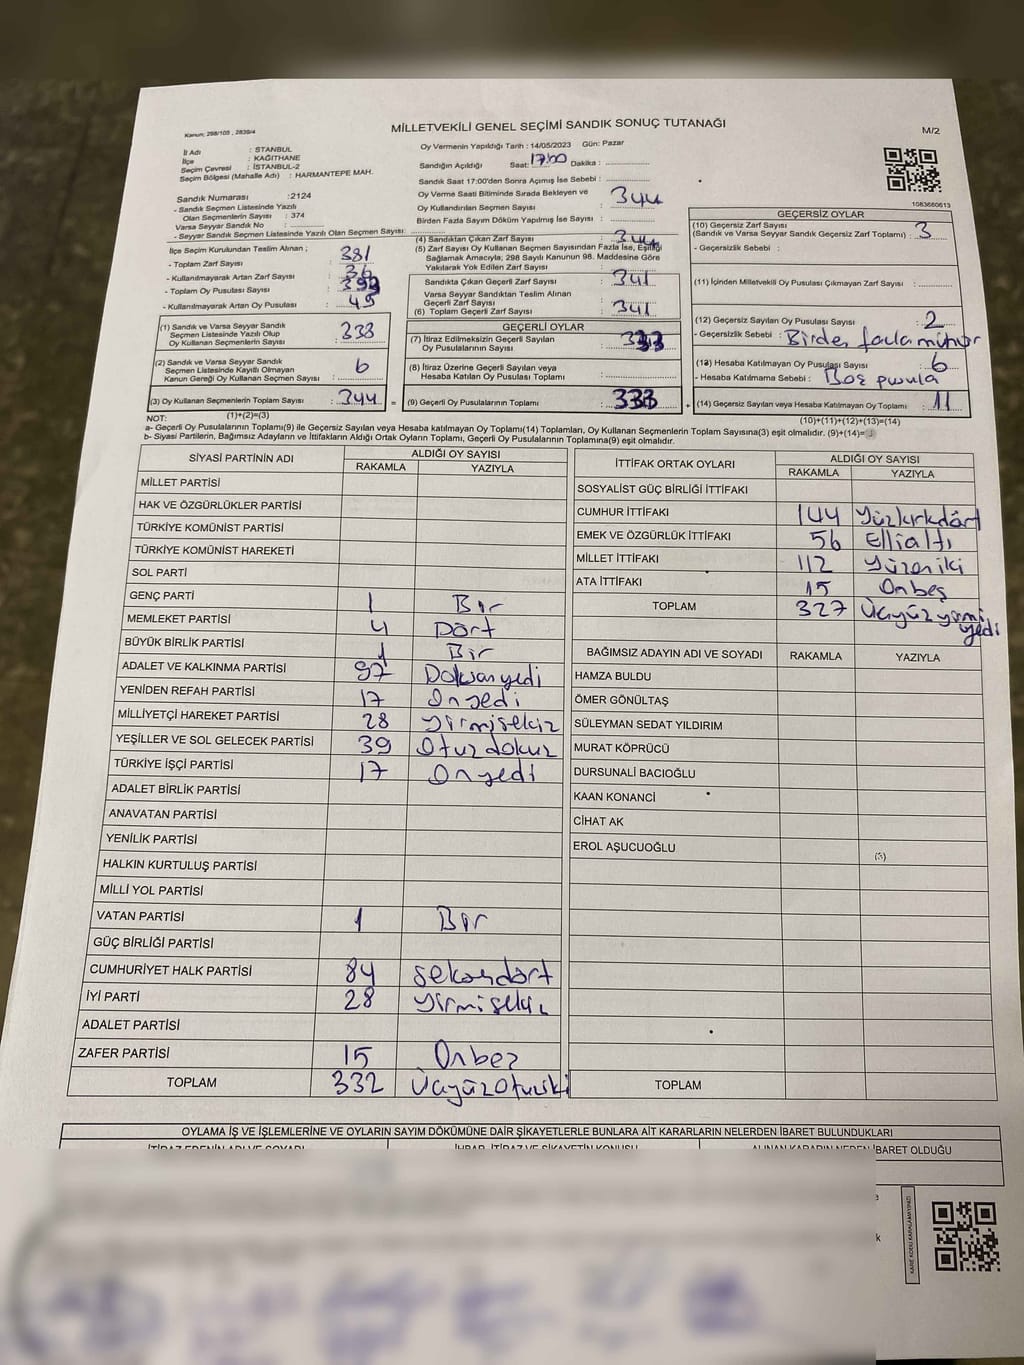 Kanun; 298/105 , 2839/4
MİLLETVEKİLİ GENEL SEÇİMİ SANDIK SONUÇ TUTANAĞI
M/2
İl Adı : STANBUL
İlçe : KAĞITHANE
Seçim Çevresi : İSTANBUL-2
Seçim Bölgesi (Mahalle Adı) : HARMANTEPE MAH.
Sandık Numarası :2124
- Sandık Seçmen Listesinde Yazılı
Olan Seçmenlerin Sayısı : 374
Varsa Seyyar Sandık No :
- Seyyar Sandık Seçmen Listesinde Yazılı Olan Seçmen Sayısı :
Oy Vermenin Yapıldığı Tarih : 14/05/2023 Gün: Pazar
Sandığın Açıldığı Saat: 17:00 Dakika :
Sandık Saat 17:00'den Sonra Açılmış İse Sebebi :
Oy Verme Saati Bitiminde Sırada Bekleyen ve
Oy Kullandırılan Seçmen Sayısı : 344
Birden Fazla Sayım Döküm Yapılmış İse Sayısı :
1083680613
İlçe Seçim Kurulundan Teslim Alınan ;
- Toplam Zarf Sayısı : 381
- Kullanılmayarak Artan Zarf Sayısı : 36
- Toplam Oy Pusulası Sayısı :
- Kullanılmayarak Artan Oy Pusulası : 45
(1) Sandık ve Varsa Seyyar Sandık
Seçmen Listesinde Yazılı Olup
Oy Kullanan Seçmenlerin Sayısı : 338
(2) Sandık ve Varsa Seyyar Sandık
Seçmen Listesinde Kayıtlı Olmayan
Kanun Gereği Oy Kullanan Seçmen Sayısı : 6
(3) Oy Kullanan Seçmenlerin Toplam Sayısı : 344 =
(1)+(2)=(3)
(4) Sandıktan Çıkan Zarf Sayısı : 344
(5) Zarf Sayısı Oy Kullanan Seçmen Sayısından Fazla İse, Eşitliği
Sağlamak Amacıyla, 298 Sayılı Kanunun 98. Maddesine Göre
Yakılarak Yok Edilen Zarf Sayısı :
Sandıkta Çıkan Geçerli Zarf Sayısı : 341
Varsa Seyyar Sandıktan Teslim Alınan
Geçerli Zarf Sayısı :
(6) Toplam Geçerli Zarf Sayısı : 341
GEÇERLİ OYLAR
(7) İtiraz Edilmeksizin Geçerli Sayılan
Oy Pusulalarının Sayısı : 333
(8) İtiraz Üzerine Geçerli Sayılan veya
Hesaba Katılan Oy Pusulası Toplamı :
(9) Geçerli Oy Pusulalarının Toplamı : 333 +
GEÇERSİZ OYLAR
(10) Geçersiz Zarf Sayısı
(Sandık ve Varsa Seyyar Sandık Geçersiz Zarf Toplamı) : 3
- Geçersizlik Sebebi :
(11) İçinden Milletvekili Oy Pusulası Çıkmayan Zarf Sayısı :
(12) Geçersiz Sayılan Oy Pusulası Sayısı : 2
- Geçersizlik Sebebi : Birden fazla mühür
(13) Hesaba Katılmayan Oy Pusulası Sayısı : 6
- Hesaba Katılmama Sebebi : Boş pusula
(14) Geçersiz Sayılan veya Hesaba Katılmayan Oy Toplamı : 11
(10)+(11)+(12)+(13)=(14)
NOT:
a- Geçerli Oy Pusulalarının Toplamı(9) ile Geçersiz Sayılan veya Hesaba Katılmayan Oy Toplamı(14) Toplamları, Oy Kullanan Seçmenlerin Toplam Sayısına(3) eşit olmalıdır. (9)+(14)=
b- Siyasi Partilerin, Bağımsız Adayların ve İttifakların Aldığı Ortak Oyların Toplamı, Geçerli Oy Pusulalarının Toplamına(9) eşit olmalıdır.
SİYASİ PARTİNİN ADI ALDIĞI OY SAYISI
RAKAMLA YAZIYLA
MİLLET PARTİSİ
HAK VE ÖZGÜRLÜKLER PARTİSİ
TÜRKİYE KOMÜNİST PARTİSİ
TÜRKİYE KOMÜNİST HAREKETİ
SOL PARTİ
GENÇ PARTİ 1 Bir
MEMLEKET PARTİSİ 4 Dört
BÜYÜK BİRLİK PARTİSİ 1 Bir
ADALET VE KALKINMA PARTİSİ 97 Doksanyedi
YENİDEN REFAH PARTİSİ 17 Onyedi
MİLLİYETÇİ HAREKET PARTİSİ 28 Yirmisekiz
YEŞİLLER VE SOL GELECEK PARTİSİ 39 Otuzdokuz
TÜRKİYE İŞÇİ PARTİSİ 17 Onyedi
ADALET BİRLİK PARTİSİ
ANAVATAN PARTİSİ
YENİLİK PARTİSİ
HALKIN KURTULUŞ PARTİSİ
MİLLİ YOL PARTİSİ
VATAN PARTİSİ 1 Bir
GÜÇ BİRLİĞİ PARTİSİ
CUMHURİYET HALK PARTİSİ 84 Seksendört
İYİ PARTİ 28 Yirmisekiz
ADALET PARTİSİ
ZAFER PARTİSİ 15 Onbeş
TOPLAM 332 Üçyüzotuziki
İTTİFAK ORTAK OYLARI ALDIĞI OY SAYISI
RAKAMLA YAZIYLA
SOSYALİST GÜÇ BİRLİĞİ İTTİFAKI
CUMHUR İTTİFAKI 144 Yüzkırkdört
EMEK VE ÖZGÜRLÜK İTTİFAKI 56 Ellialtı
MİLLET İTTİFAKI 112 Yüzoniki
ATA İTTİFAKI 15 Onbeş
TOPLAM 327 Üçyüzyirmi
yedi
BAĞIMSIZ ADAYIN ADI VE SOYADI RAKAMLA YAZIYLA
HAMZA BULDU
ÖMER GÖNÜLTAŞ
SÜLEYMAN SEDAT YILDIRIM
MURAT KÖPRÜCÜ
DURSUNALİ BACIOĞLU
KAAN KONANCİ
CİHAT AK
EROL AŞUCUOĞLU
TOPLAM
OYLAMA İŞ VE İŞLEMLERİNE VE OYLARIN SAYIM DÖKÜMÜNE DAİR ŞİKAYETLERLE BUNLARA AİT KARARLARIN NELERDEN İBARET BULUNDUKLARI
İTİRAZ EDENİN ADI VE SOYADI İHBAR, İTİRAZ VE ŞİKAYETİN KONUSU ALINAN KARARIN NEDEN İBARET OLDUĞU